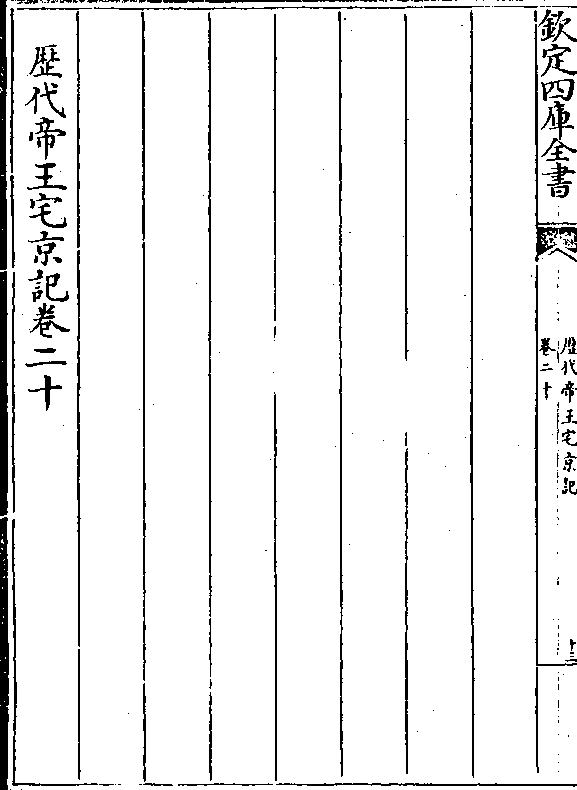 欽定四庫全書
歷代帝王宅京記
卷二十
十三
歷代帝王宅京記卷二十